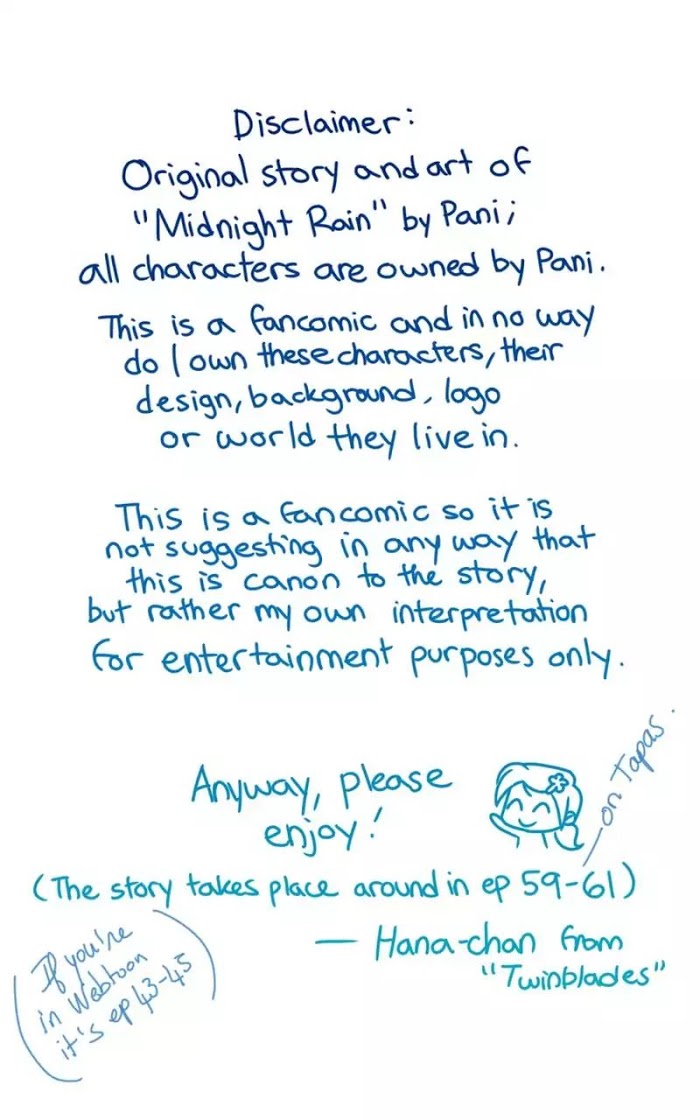 Disclaimer:
Original story and art of
"Midnight Rain" by Pani;
all characters are owned by Pani.
This is a fancomic and in no way
do I own these characters, their
design, background, logo
or world they live in.
This is a fancomic so it is
not suggesting in any way that
this is canon to the story,
but rather my own interpretation
for entertainment purposes only.
Anyway, please
enjoy!
on Tapas.
(The story takes place around in ep 59-61)
— Hana-chan from
"Twinblades"
(If you're
in Webtoon
it's ep 43-45)